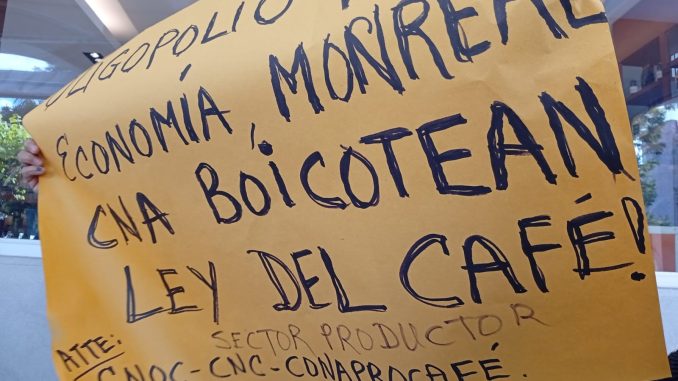 OLIGOPOLIO
ECONOMÍA, MONREAL
CNA BÓICOTEAN
LEY DEL CAFÉ!
SECTOR PRODUCTOR
ATTE:
CNOC-CNC-CONAPROCAFÉ.